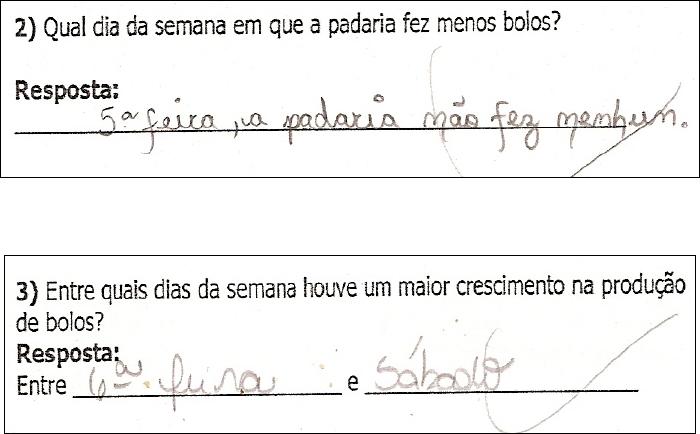 2) Qual dia da semana em que a padaria fez menos bolos?
Resposta:
5ª feira, a padaria não fez nenhum.
3) Entre quais dias da semana houve um maior crescimento na produção
de bolos?
Resposta:
Entre 6ª feira e sábado